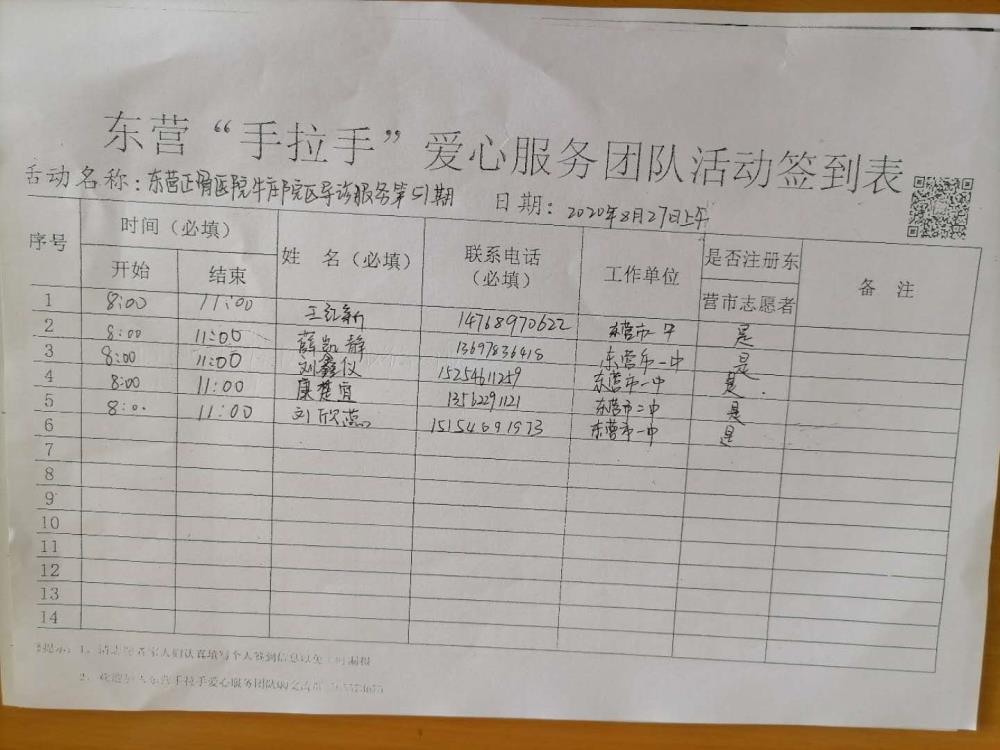 东营“手拉手”爱心服务团队活动签到表
活动名称：东营正骨医院牛庄院区导诊服务第51期 日期：2020年8月27日上午
序号 时间（必填） 姓 名（必填） 联系电话（必填） 工作单位 是否注册东营市志愿者 备 注
开始 结束
1 8:00 11:00 王纪新 14768970622 东营市一中 是
2 8:00 11:00 薛凯静 13697836418 东营市一中 是
3 8:00 11:00 刘鑫仪 15254611259 东营市一中 是
4 8:00 11:00 康楚宜 13562291121 东营市二中 是
5 8:00 11:00 刘欣蕊 15154691973 东营市一中 是
6
7
8
9
10
11
12
13
14
提示：1、请志愿者家人们认真填写个人签到信息以免工时漏报
2、欢迎加入东营手拉手爱心服务团队